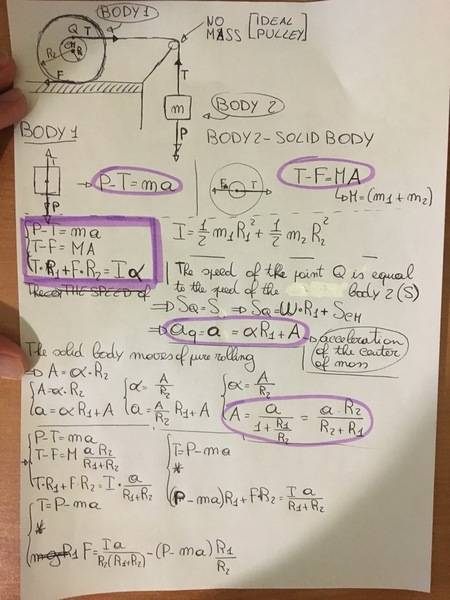 BODY 1
NO MASS [IDEAL PULLEY]
Q T
CM R1
R2
F
T
m
P
BODY 2
BODY 1
BODY 2 - SOLID BODY
T
P
→ P-T=ma
F T
T-F=MA
↳ M=(m1+m2)
P-T=ma
T-F=MA
T·R1+F·R2=Iα
I=1/2 m1R1²+1/2 m2R2²
The speed of the point Q is equal
to the speed of the body 2 (S)
⇒ SQ=S, ⇒ SQ=W·R1+SCM
⇒ aQ=a=αR1+A
→ acceleration of the center of moss
The solid body moves of pure rolling
⇒ A=α·R2
A=α·R2
a=αR1+A
α=A/R2
a=A/R2 R1+A
α=A/R2
A=a/(1+R1/R2)=a·R2/(R2+R1)
P-T=ma
T-F=M aR2/(R1+R2)
T·R1+F R2=I·a/(R1+R2)
T=P-ma
*
(P-ma)R1+F·R2=Ia/(R1+R2)
T=P-ma
*
F=Ia/(R2(R1+R2))-(P-ma)R1/R2